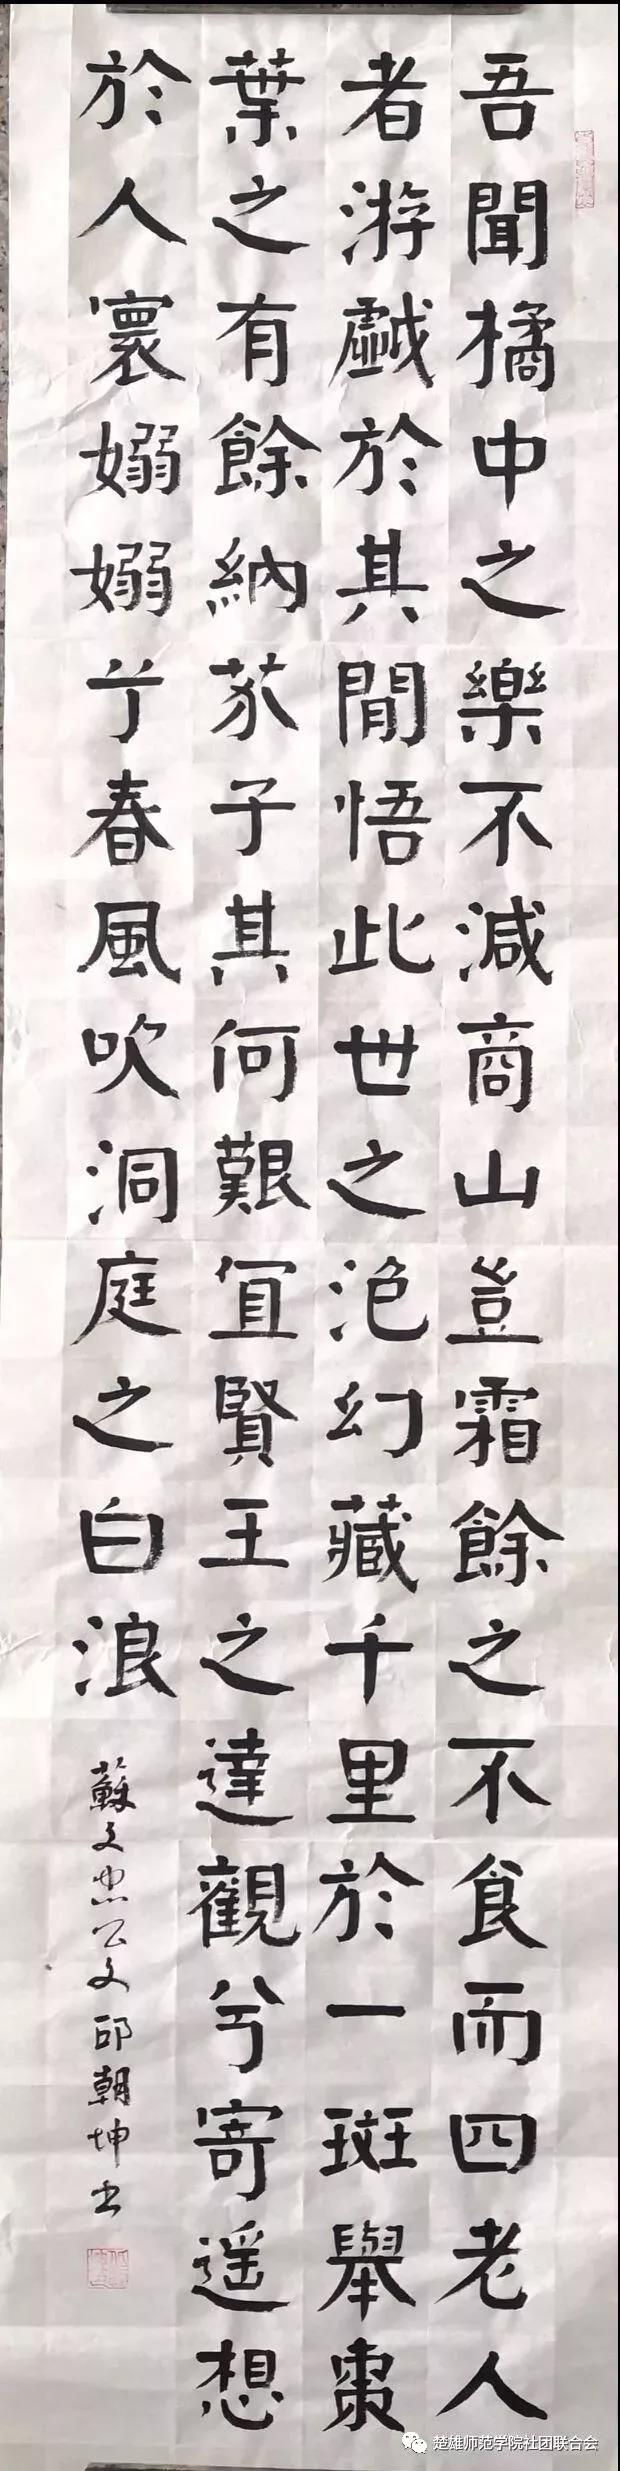 吾聞橘中之樂不減商山豈霜餘之不食而四老人
者游戱於其閒悟此世之泡幻藏千里於一斑舉棗
葉之有餘納芥子其何艱宜賢王之達觀兮寄遥想
於人寰嫋嫋兮春風吹洞庭之白浪
蘇文忠公文邱朝坤书
楚雄师范学院社团联合会